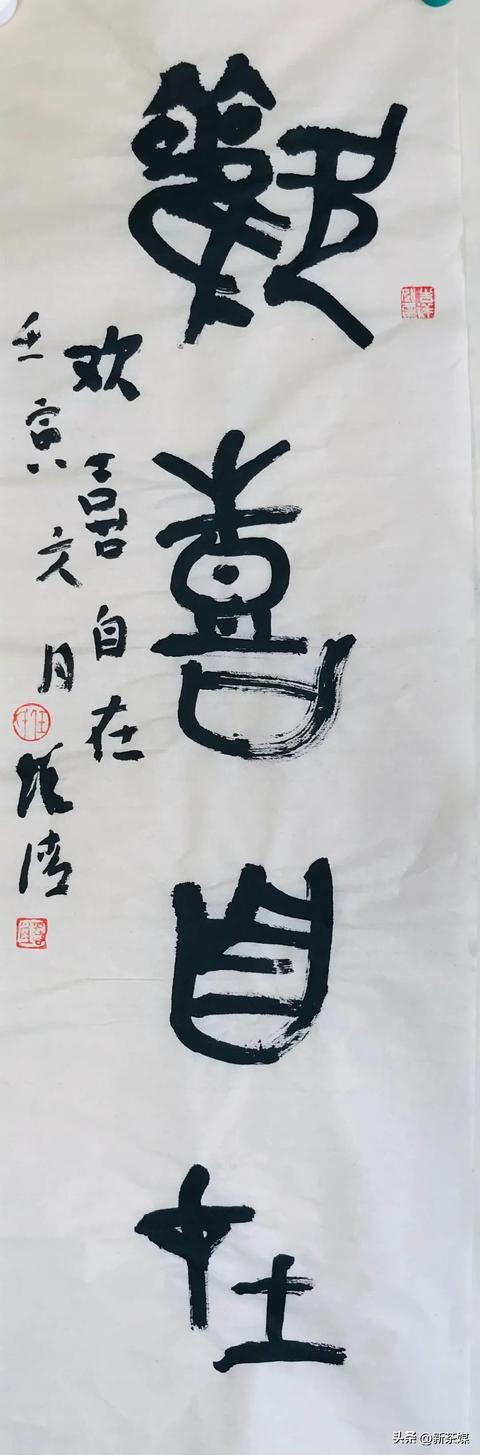 歡喜自在
欢喜自在
壬寅六月
头条 @新茶媒